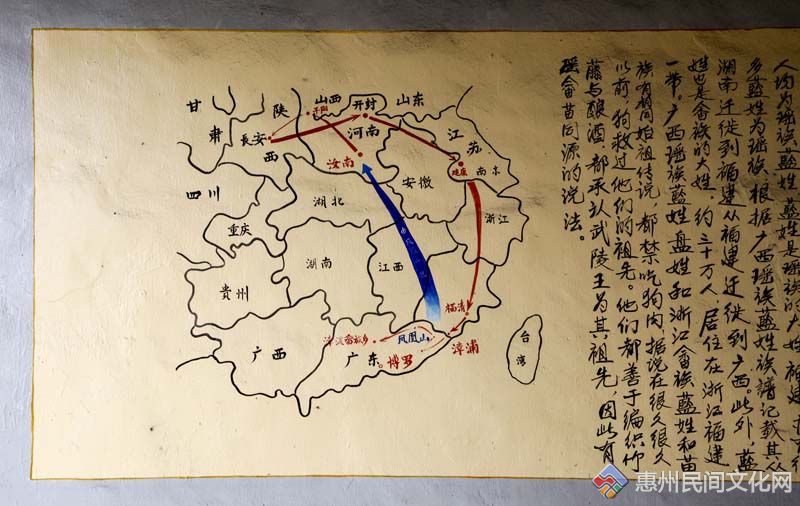 人均为瑶族蓝姓。蓝姓是瑶族的大姓。福建
乡蓝姓为瑶族。根据广西瑶族蓝姓族谱记载其从
湖南迁徙到福建从福建迁徙到广西。此外，蓝
姓也是畲族的大姓，约三十万人，居住在浙江福建
一带。广西瑶族蓝姓盘姓和浙江畲族蓝姓和苗
族有相同始祖传说，都禁吃狗肉，据说在很久很久
以前，狗救过他们的祖先。他们都善于编织竹
藤与酿酒，都承认武陵王为其祖先，因此有
瑶畲苗同源的说法。
甘肃
陕西
山西
开封
山东
長安
河南
江苏
汝南
建康
南京
四川
安徽
湖北
浙江
重庆
湖南
江西
贵州
福清
凤凰山
漳浦
台湾
广西
广东
博罗
惠州民间文化网